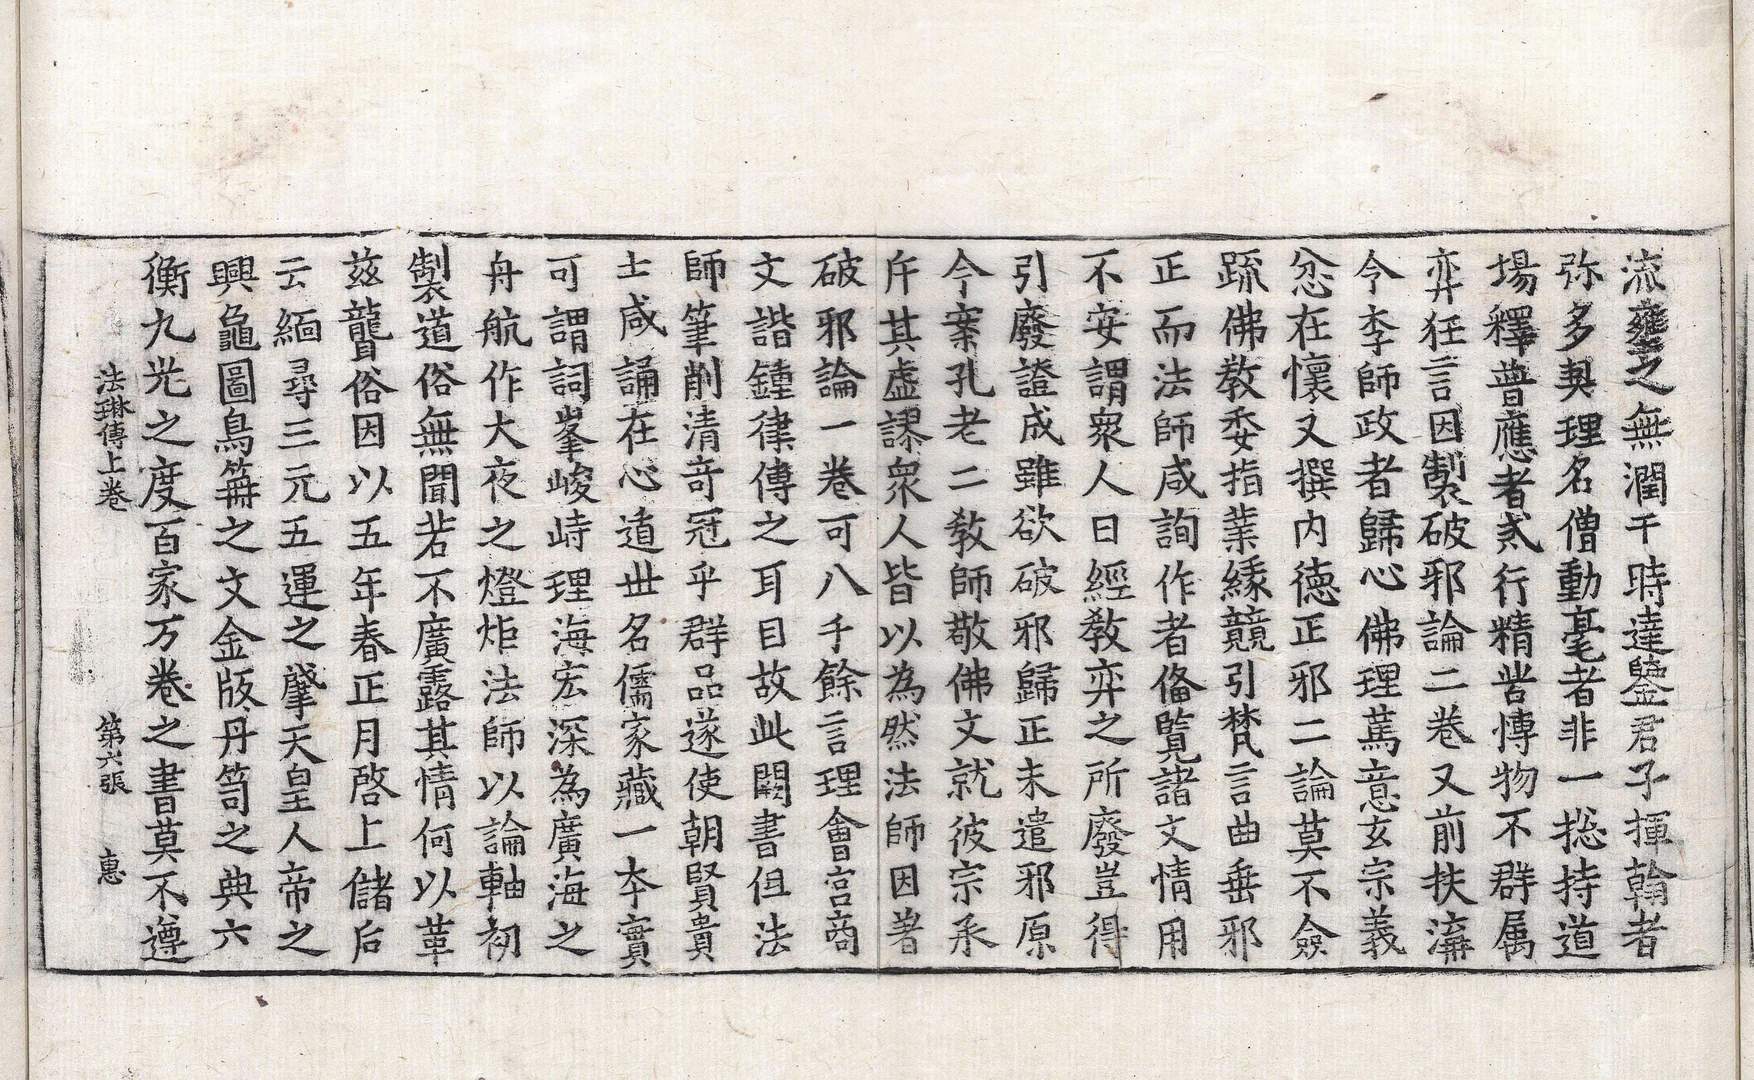 流壅之無潤干時達鑒君子揮翰者
弥多契理名僧動毫者非一捴持道
場釋普應者貳行精苦愽物不群属
弈狂言因製破邪論二巻又前扶溝
今李師政者歸心佛理篤意玄宗義
忿在懷又撰内德正邪二論莫不僉
䟽佛教委指業緣競引梵言曲垂邪
正而法師咸詢作者俻覧諸文情用
不安謂衆人曰經教弈之所廢豈得
引廢證成雖欲破邪歸正未遣邪原
今案孔老二教師敬佛文就彼宗承
斥其虛謬衆人皆以為然法師因著
破邪論一巻可八千餘言理會宫商
文諧鍾律傳之耳目故此闕書但法
師筆削清竒冠乎群品遂使朝賢貴
士咸誦在心逍世名儒家藏一夲實
可謂詞峯峻峙理海宏深為廣海之
舟航作大夜之燈炬法師以論軸初
製道俗無聞若不廣露其情何以革
茲聾俗因以五年春正月啓上儲后
云緬尋三元五運之肇天皇人帝之
興龜圖鳥篆之文金版丹笥之典六
衡九光之度百家万巻之書莫不遵
法琳傳上巻　第六張　惠